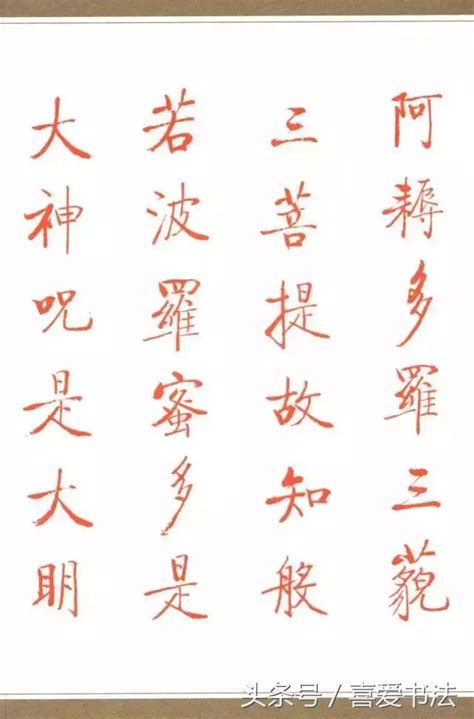 阿耨多羅三藐
三菩提故知般
若波羅蜜多是
大神呪是大明
头条号/喜爱书法